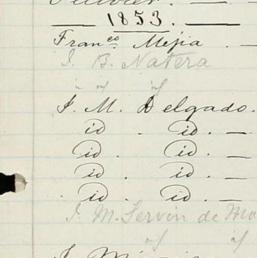 — 1853. —
Fran.co Mejia —
J. B. Natera
J. M. Delgado.
id . id . —
id . id . —
id . id . —
id . id . —
J. M. Servin de